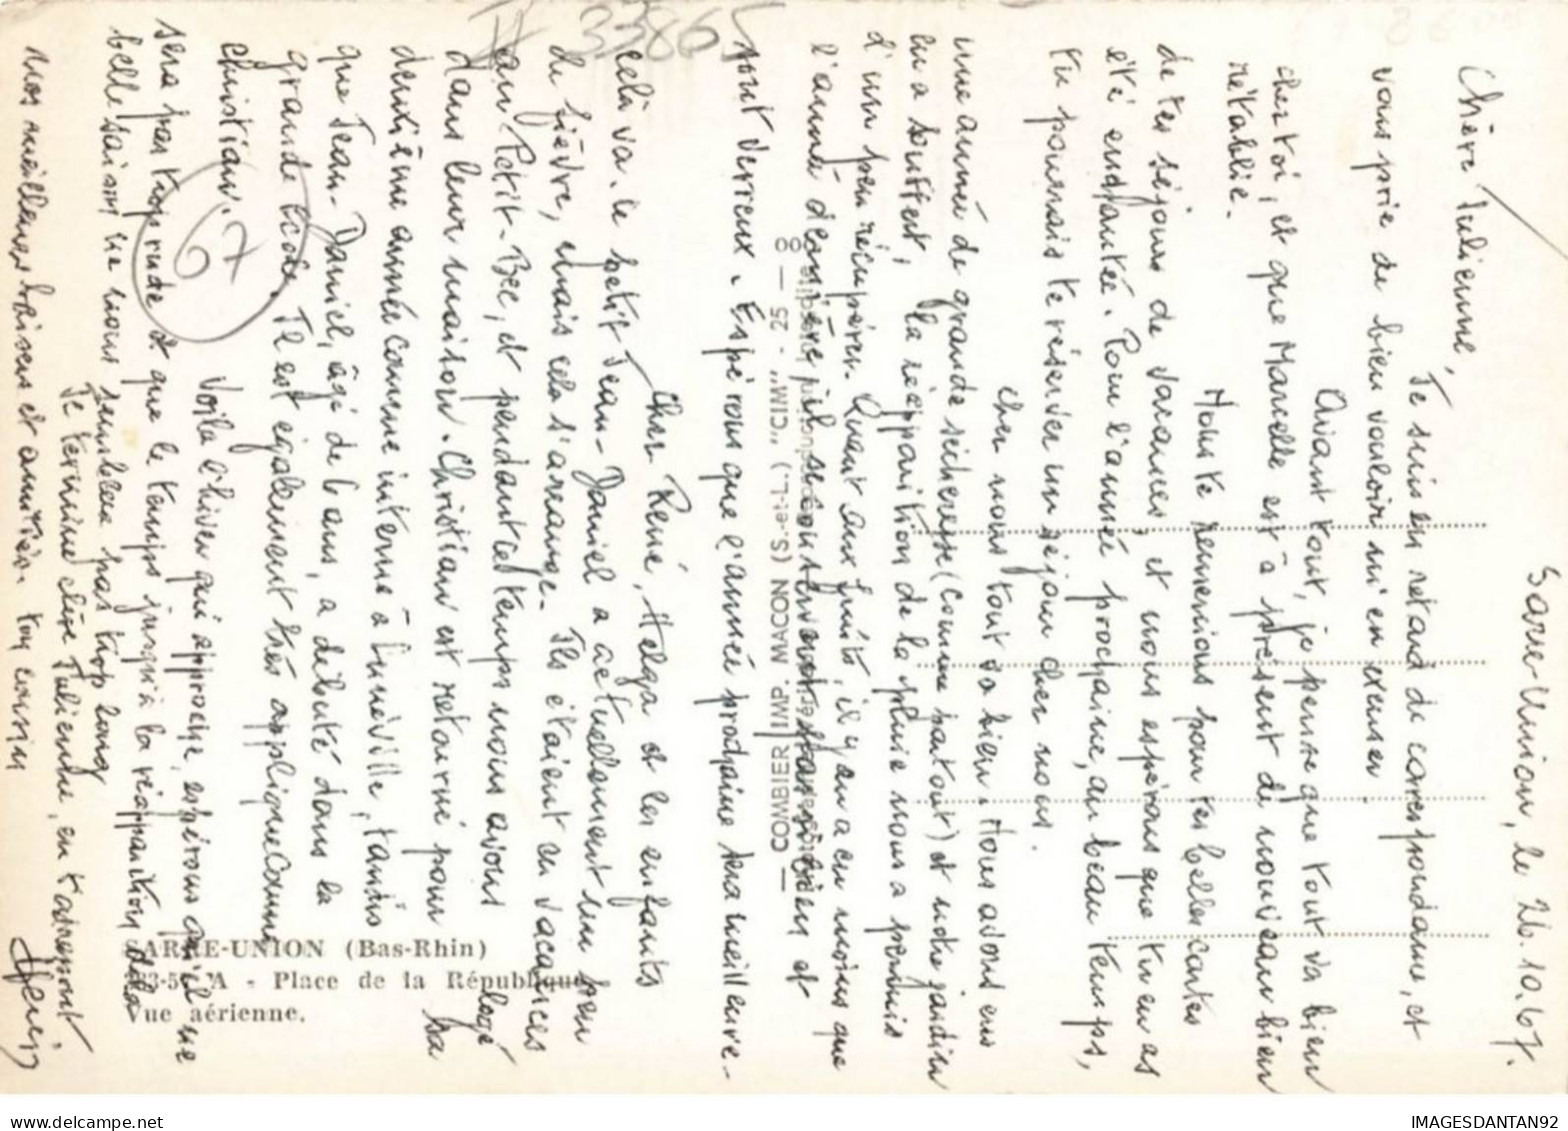 Sarre-Union, le 26.10.67.
Chère Julienne,
Je suis en retard de correspondance, et
vous prie de bien vouloir m'en excuser.
Avant tout, je pense que tout va bien
chez toi, et que Marcelle est à présent de nouveau bien
rétablie.
Nous te remercions pour tes belles cartes
de tes séjours de vacances, et nous espérons que tu en as
été enchantée. Pour l'année prochaine, au beau temps,
tu pourrais te réserver un séjour chez nous.
Chez nous tout va bien. Nous avons eus
une année de grande sécheresse (comme partout) et notre jardin
en a souffert, la réapparition de la pluie nous a permis
d'un peu récupérer. Quant aux fruits, il y en a eu moins que
l'année dernière, il se conservent pas bien et
sont verreux. Espérons que l'année prochaine sera meilleure.
Chez René, Helga et les enfants
celà va. le petit Jean-Daniel a actuellement un peu
de fièvre, mais cela s'arrange. Ils étaient en vacances
au Petit-Bec, et pendant ce temps nous avons logé
dans leur maison. Christian est retourné pour sa
deuxième année comme interne à Lunéville, tandis
que Jean-Daniel, âgé de 6 ans, a débuté dans la
grande école. Il est également très appliqué comme
Christian.
Voilà l'hiver qui approche, espérons qu'il ne
sera pas trop rude et que le temps jusqu'à la réapparition de la
belle saison ne nous semblera pas trop long
Je termine chère Julienne, en t'adressant
nos meilleurs baisers et amitiés. ton cousin
Henri
67
33865
— COMBIER IMP. MACON (S.-et-L.) "CIM" - 25 — 00
SARRE-UNION (Bas-Rhin)
A - Place de la République
Vue aérienne.
IMAGESDANTAN92